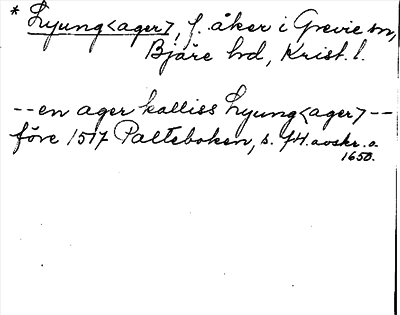 * Lyung<ager>, f. åker i Grevie sn,
Bjäre hd, Krist. l.
--en ager kalliss Lyung<ager>--
före 1517 Palteboken, s. avskr. o.
1650.